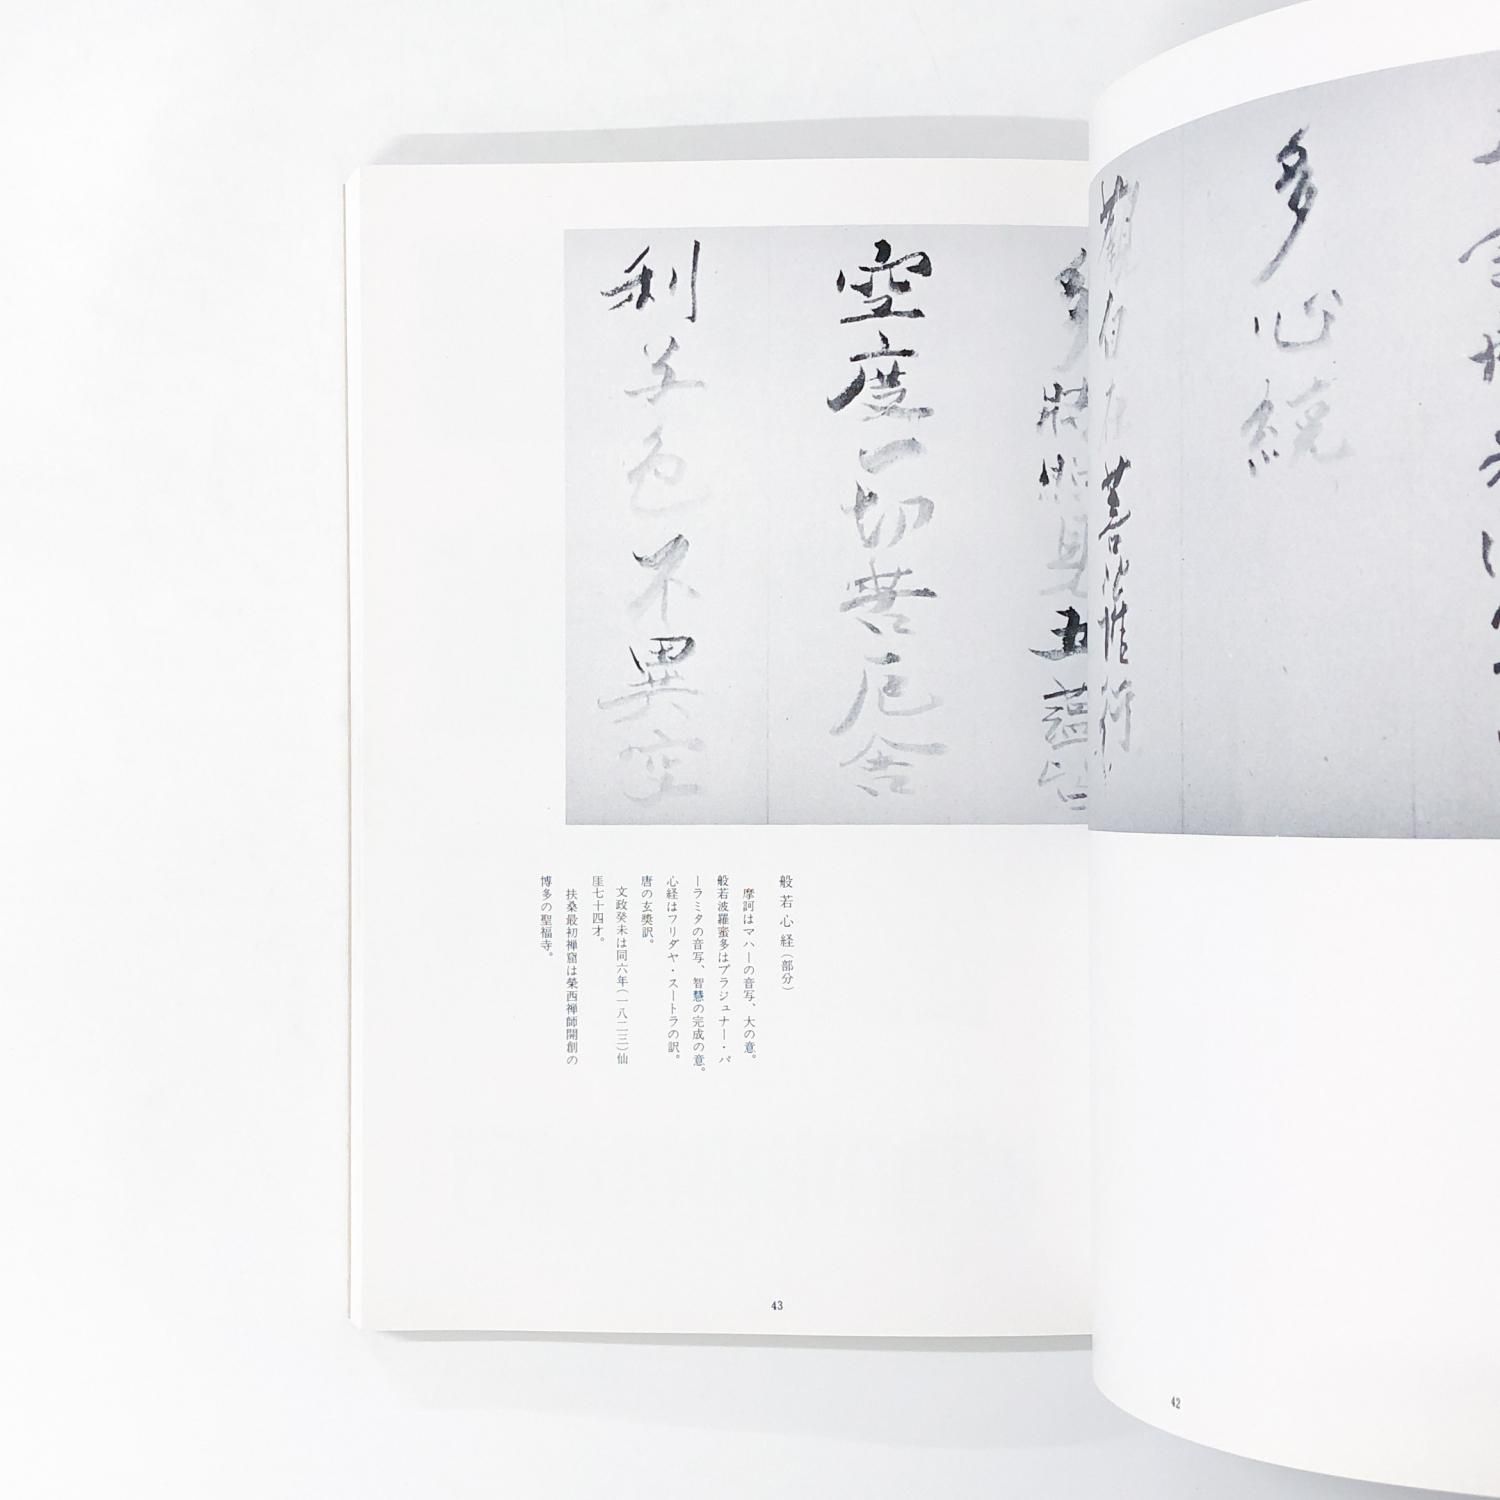 多心経
觀自在菩薩行
多時照見五蘊皆
空度一切苦厄舎
利子色不異空
般若心経（部分）
摩訶はマハーの音写、大の意。
般若波羅蜜多はプラジュナー・パ
ーラミタの音写、智慧の完成の意。
心経はフリダヤ・スートラの訳。
唐の玄奘訳。
文政癸未は同六年（一八二三）仙
厓七十四才。
扶桑最初禅窟は榮西禅師開創の
博多の聖福寺。
43
42